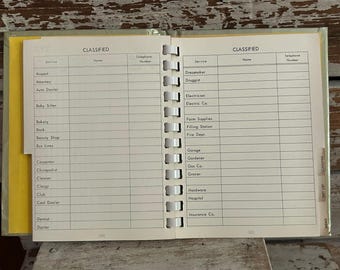 CLASSIFIED
Service Name Telephone Number
Airport
Attorney
Auto Dealer
Baby Sitter
Bakery
Bank
Beauty Shop
Bus Lines
Carpenter
Chiropodist
Cleaner
Clergy
Club
Coal Dealer
Dentist
Doctor
CLASSIFIED
Service Name Telephone Number
Dressmaker
Druggist
Electrician
Electric Co.
Farm Supplies
Filling Station
Fire Dept.
Garage
Gardener
Gas Co.
Grocer
Hardware
Hospital
Insurance Co.